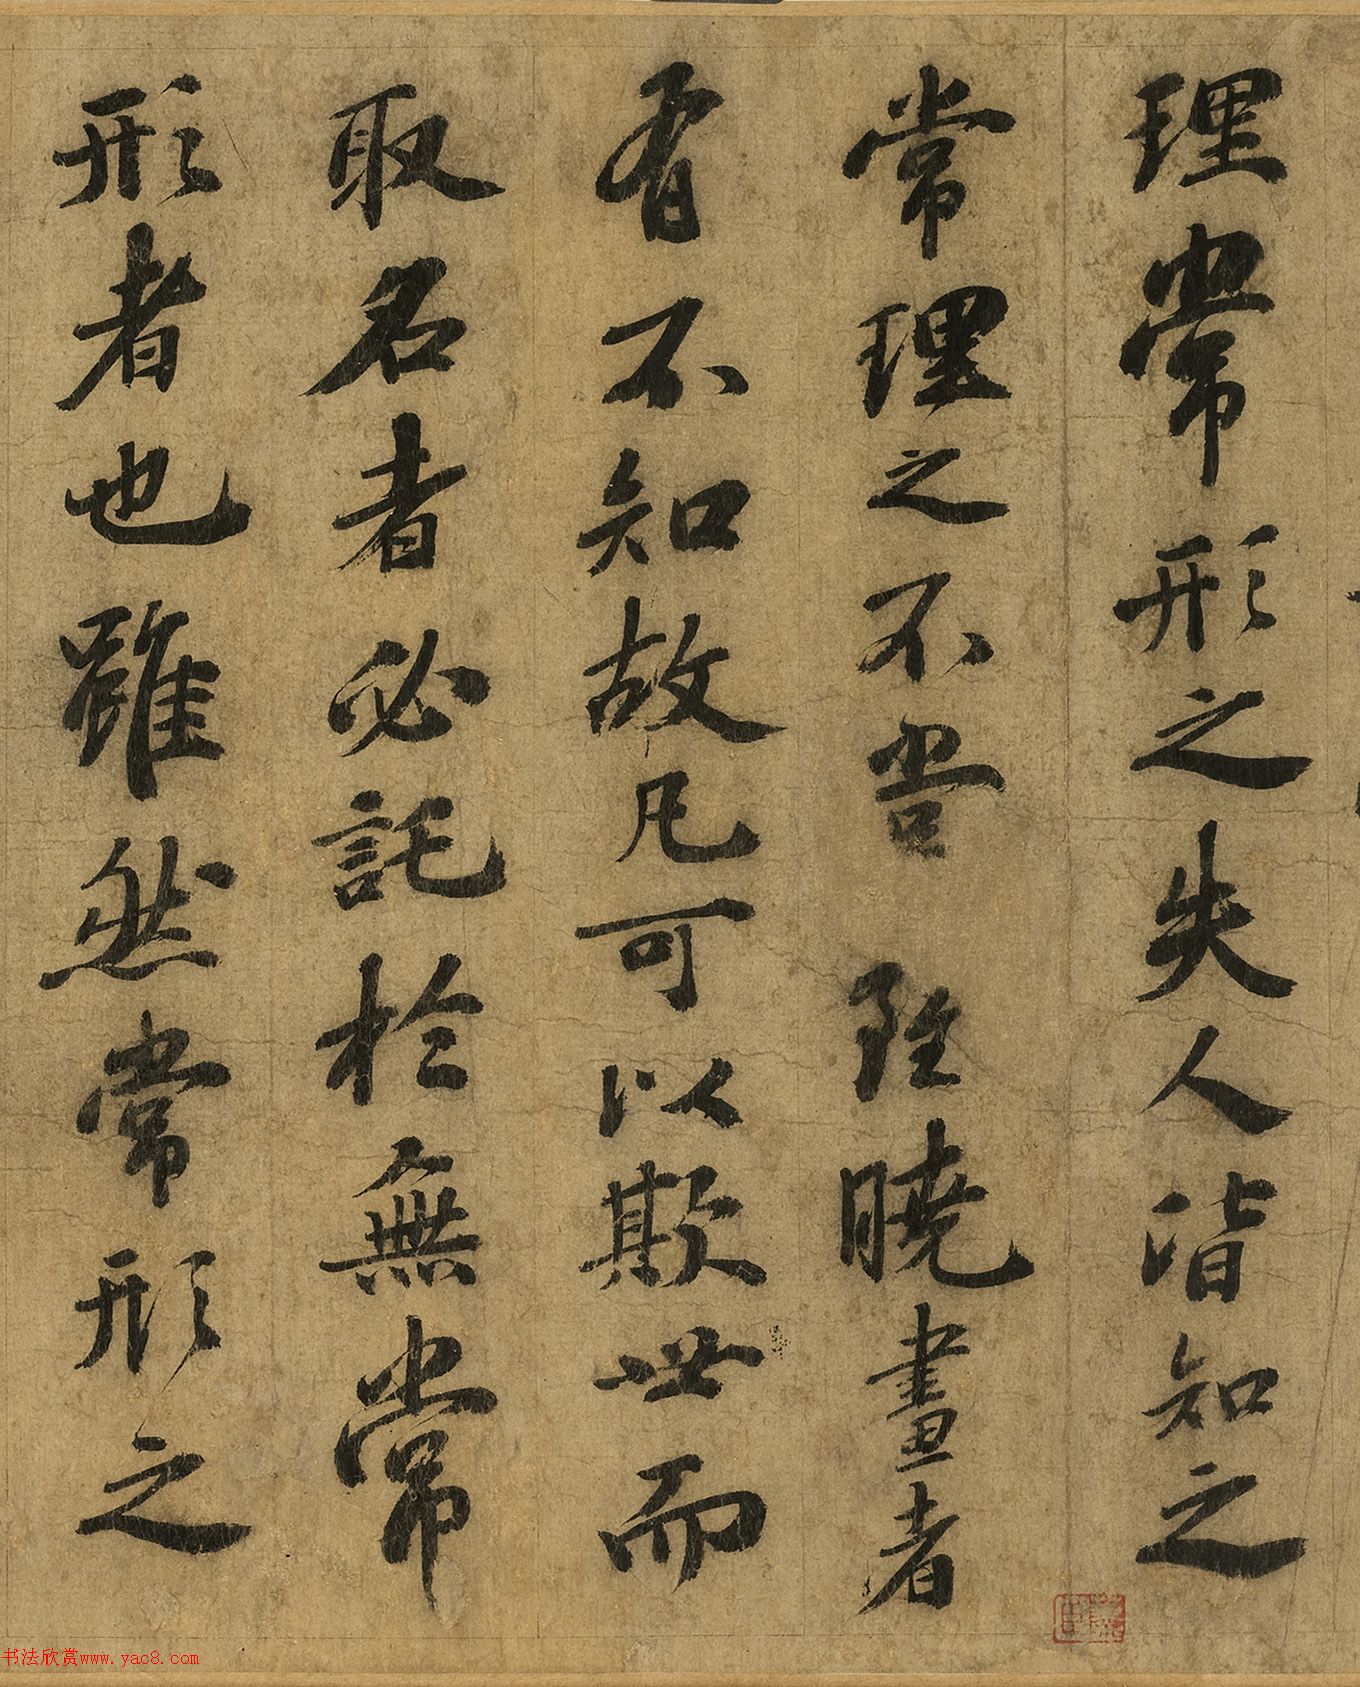 理常形之失人皆知之
常理之不當雖曉畫者
有不知故凡可以欺世而
取名者必託於無常
形者也雖然常形之
书法欣赏www.yac8.com